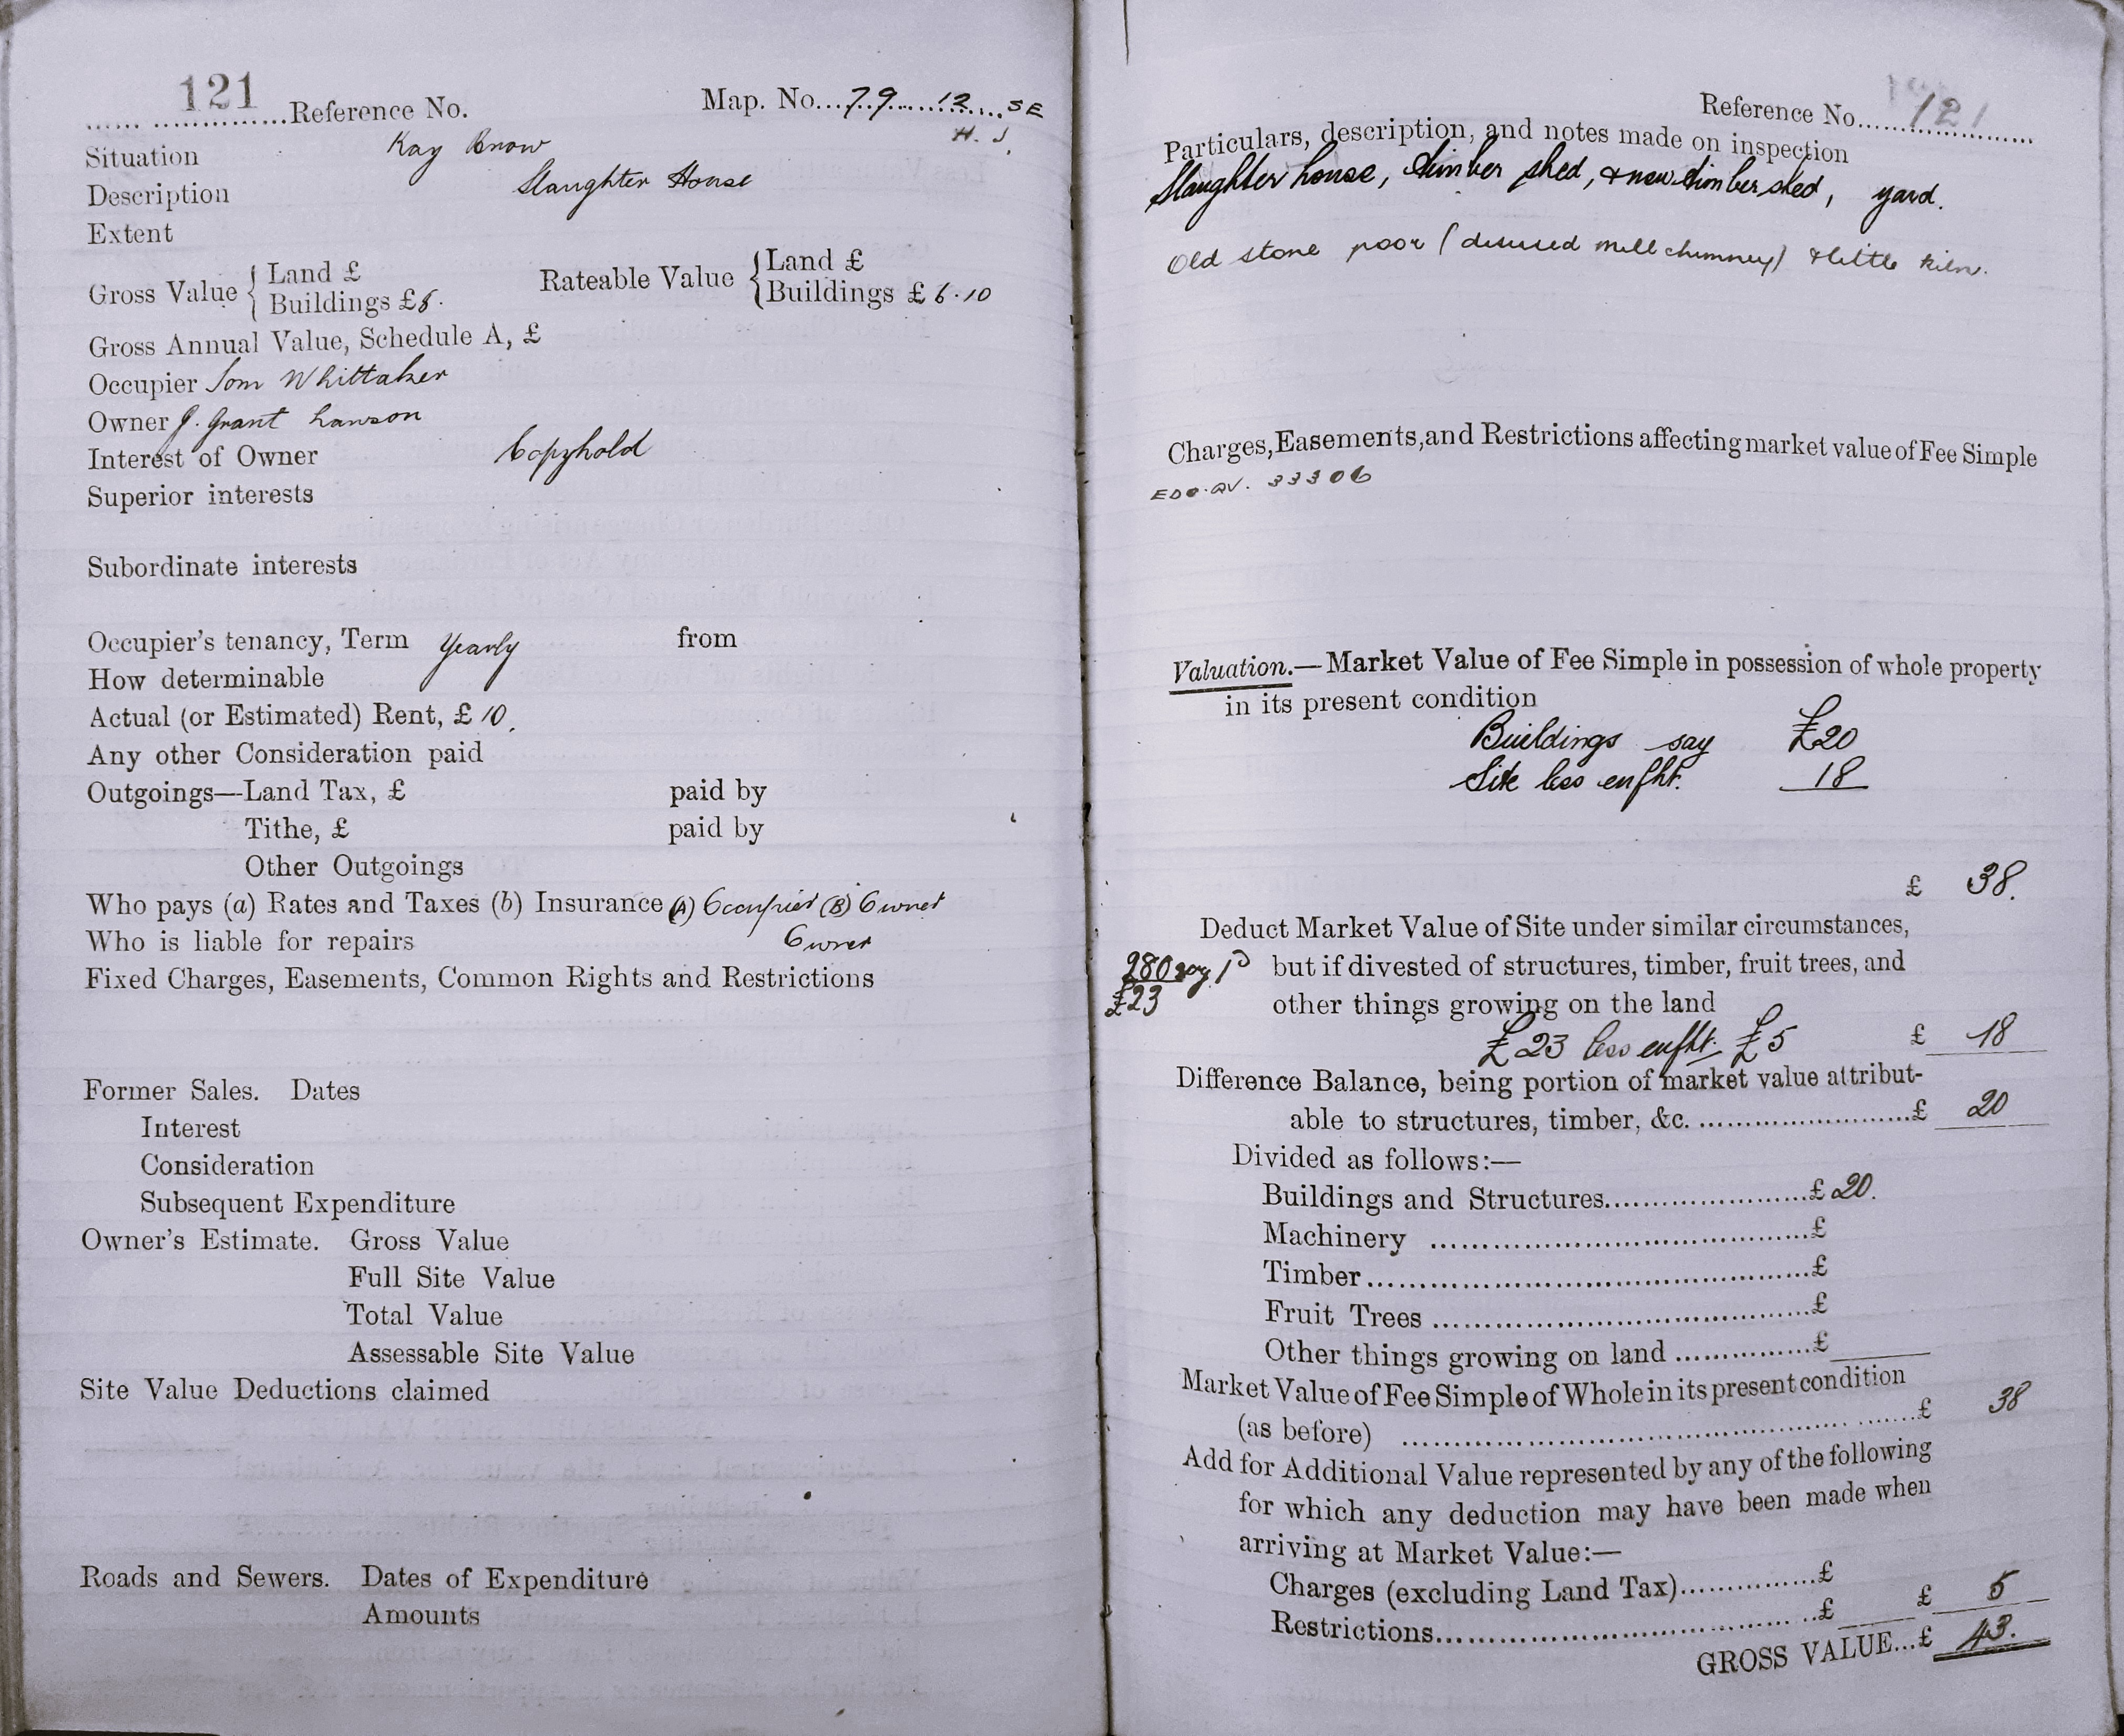 121
Reference No.
Map. No. 79 12 SE
H. J.
Situation Kay Brow
Description Slaughter House
Extent
Gross Value { Land £
Buildings £8.
Rateable Value { Land £
Buildings £ 6.10
Gross Annual Value, Schedule A, £
Occupier Tom Whittaker
Owner J. Grant Lawson
Interest of Owner Copyhold
Superior interests
Subordinate interests
Occupier's tenancy, Term Yearly from
How determinable
Actual (or Estimated) Rent, £ 10.
Any other Consideration paid
Outgoings—Land Tax, £ paid by
Tithe, £ paid by
Other Outgoings
Who pays (a) Rates and Taxes (b) Insurance (A) Occupier (B) Owner
Who is liable for repairs Owner
Fixed Charges, Easements, Common Rights and Restrictions
Former Sales. Dates
Interest
Consideration
Subsequent Expenditure
Owner's Estimate. Gross Value
Full Site Value
Total Value
Assessable Site Value
Site Value Deductions claimed
Roads and Sewers. Dates of Expenditure
Amounts
Reference No. 121
Particulars, description, and notes made on inspection
Slaughter house, timber shed, & new timber shed, yard.
Old stone poor (disused mill chimney) & little kiln.
Charges, Easements, and Restrictions affecting market value of Fee Simple
33306
Valuation.—Market Value of Fee Simple in possession of whole property
in its present condition
Buildings say £20
Site less enfht. 18
£ 38.
Deduct Market Value of Site under similar circumstances,
280 say 1/- but if divested of structures, timber, fruit trees, and
£23 other things growing on the land
£23 less enfht. £5 £ 18
Difference Balance, being portion of market value attribut-
able to structures, timber, &c. £ 20
Divided as follows:—
Buildings and Structures £ 20.
Machinery £
Timber £
Fruit Trees £
Other things growing on land £
Market Value of Fee Simple of Whole in its present condition
(as before) £ 38
Add for Additional Value represented by any of the following
for which any deduction may have been made when
arriving at Market Value:—
Charges (excluding Land Tax) £
Restrictions £ £ 5
GROSS VALUE...£ 43.